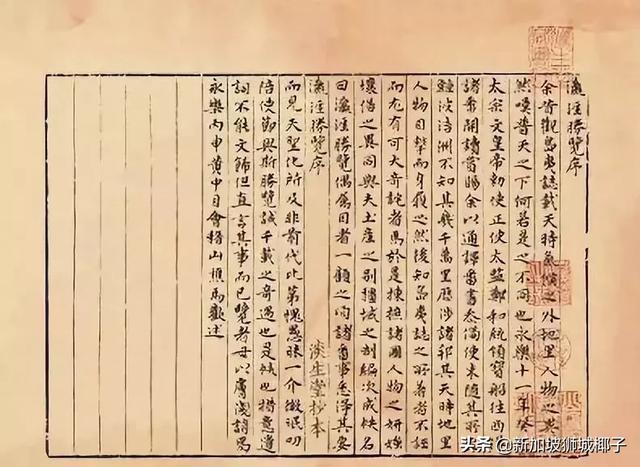 瀛涯勝覽序
余昔觀島夷誌載天時氣候之外地里人物之異
然嘆普天之下何若是之不同也永樂十一年癸
太宗文皇帝勅使正使太監鄭和統領寳船往西
諸番開讀賞賜余以通譯番書叅備使末隨其所
鯨波浩渺不知其幾千萬里歷涉諸邦其天時地里
人物目擊而身履之然後知島夷誌之所著者不誣
而尤有可大奇詫者焉於是採摭諸國人物之妍媸
壤俗之異同與夫土産之別疆域之制編次成帙名
曰瀛涯勝覽俾屬目者一顧之間諸番事悉得其要
瀛涯勝覽序 淡生堂抄本
而見天聖化所及非前代比第愧愚昧一介微氓叨
陪使節與斯勝覽誠千載之奇遇也是帙也措意遣
詞不能文飾但直言其事而已覽者毋以膚淺誚焉
永樂丙申黃中日會稽山樵馬歡述
头条 @新加坡狮城椰子